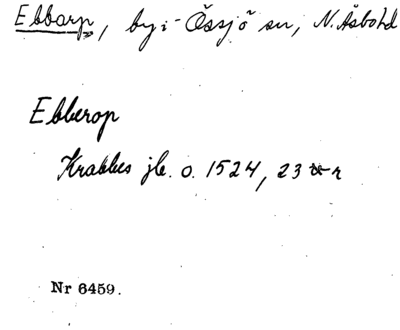 Ebbarp, by i Össjö sn, N. Åsbo hd
Ebberop
Krabbes jb. o. 1524, 23 r
Nr 6459.